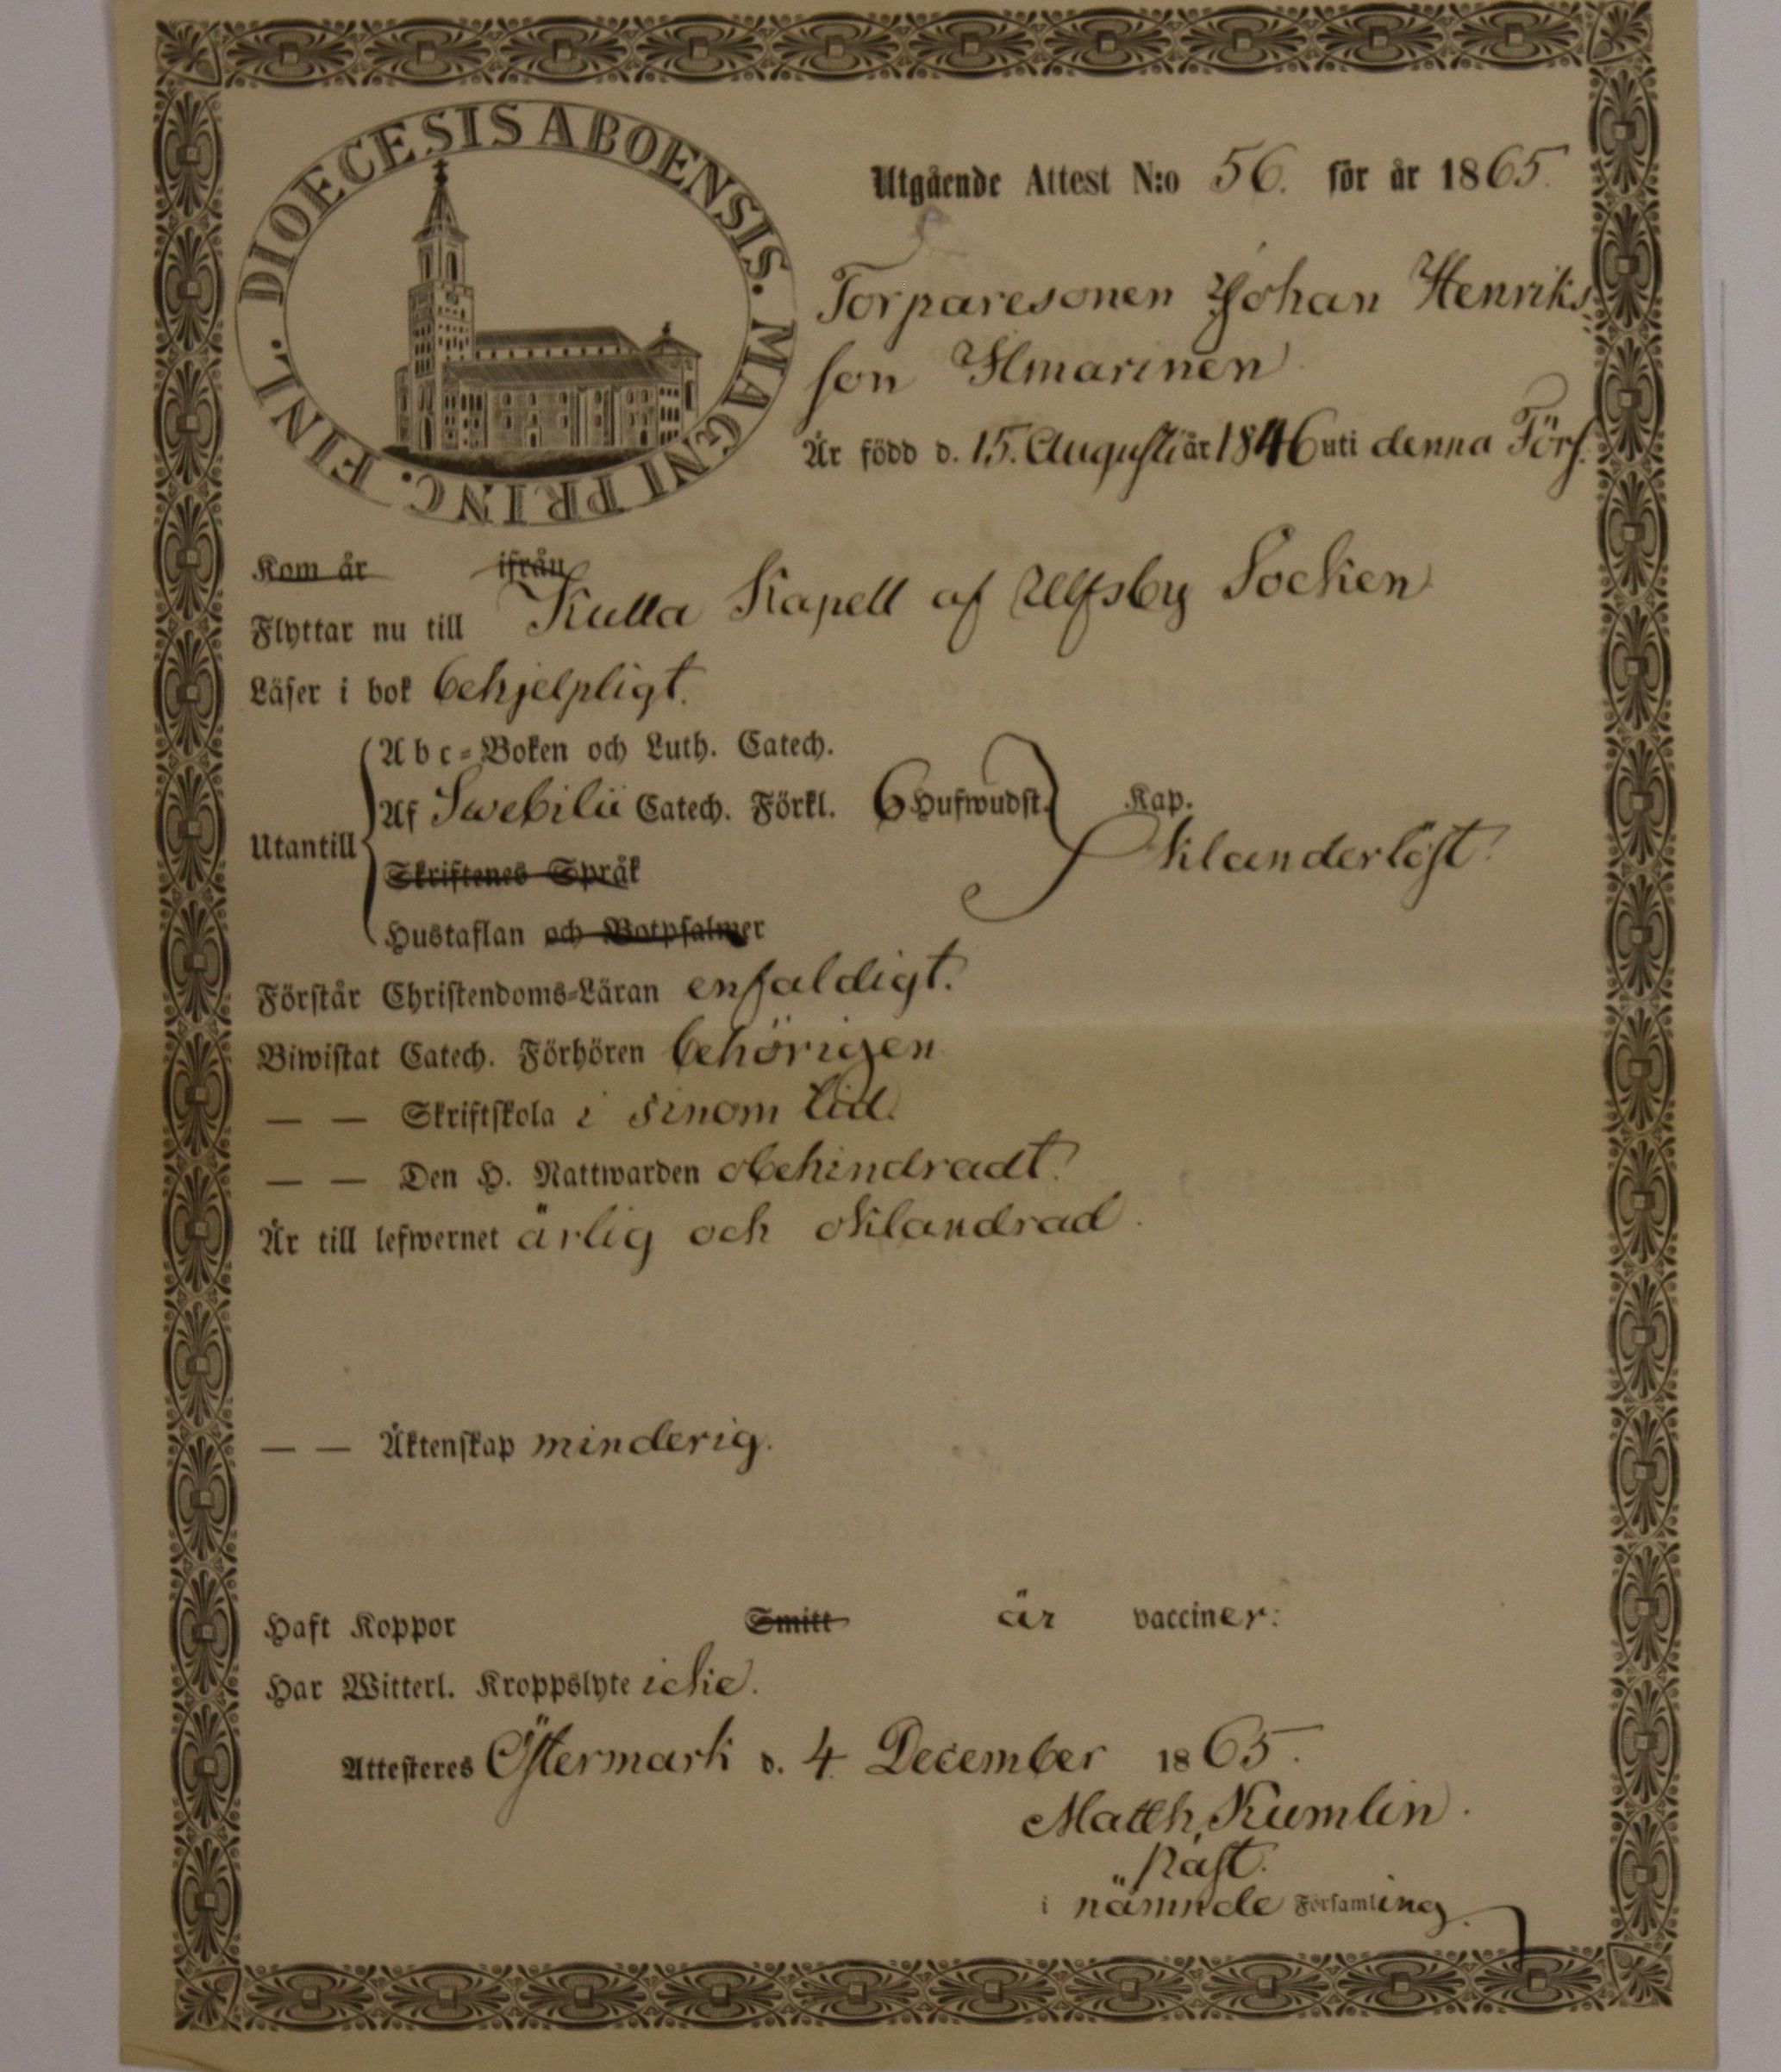 DIOECESIS ABOENSIS. MAGNI PRINC. FINL.
Utgående Attest N:o 56. för år 1865.
Torparesonen Johan Henriks-
son Ilmarinen
Är född d. 15. Augusti år 1846 uti denna Förs.
Kom år ifrån
Flyttar nu till Kulla Kapell af Ulfsby Socken
Läser i bok behjelpligt.
Utantill
Abc-Boken och Luth. Catech.
Af Swebilii Catech. Förkl. 6 Hufwudst. Kap.
oklanderlöst.
Skriftenes Språk
Hustaflan och Botpsalmer
Förstår Christendoms-Läran enfaldigt.
Biwistat Catech. Förhören behörigen
— — Skriftskola i sinom tid.
— — Den H. Nattwarden obehindradt.
Är till lefwernet ärlig och oklandrad.
— — Äktenskap minderig.
Haft Koppor Smitt är vacciner:
Har Witterl. Kroppslyte icke.
Attesteres Östermark d. 4 December 1865.
Matth. Kumlin.
Past.
i nämnde Församling.